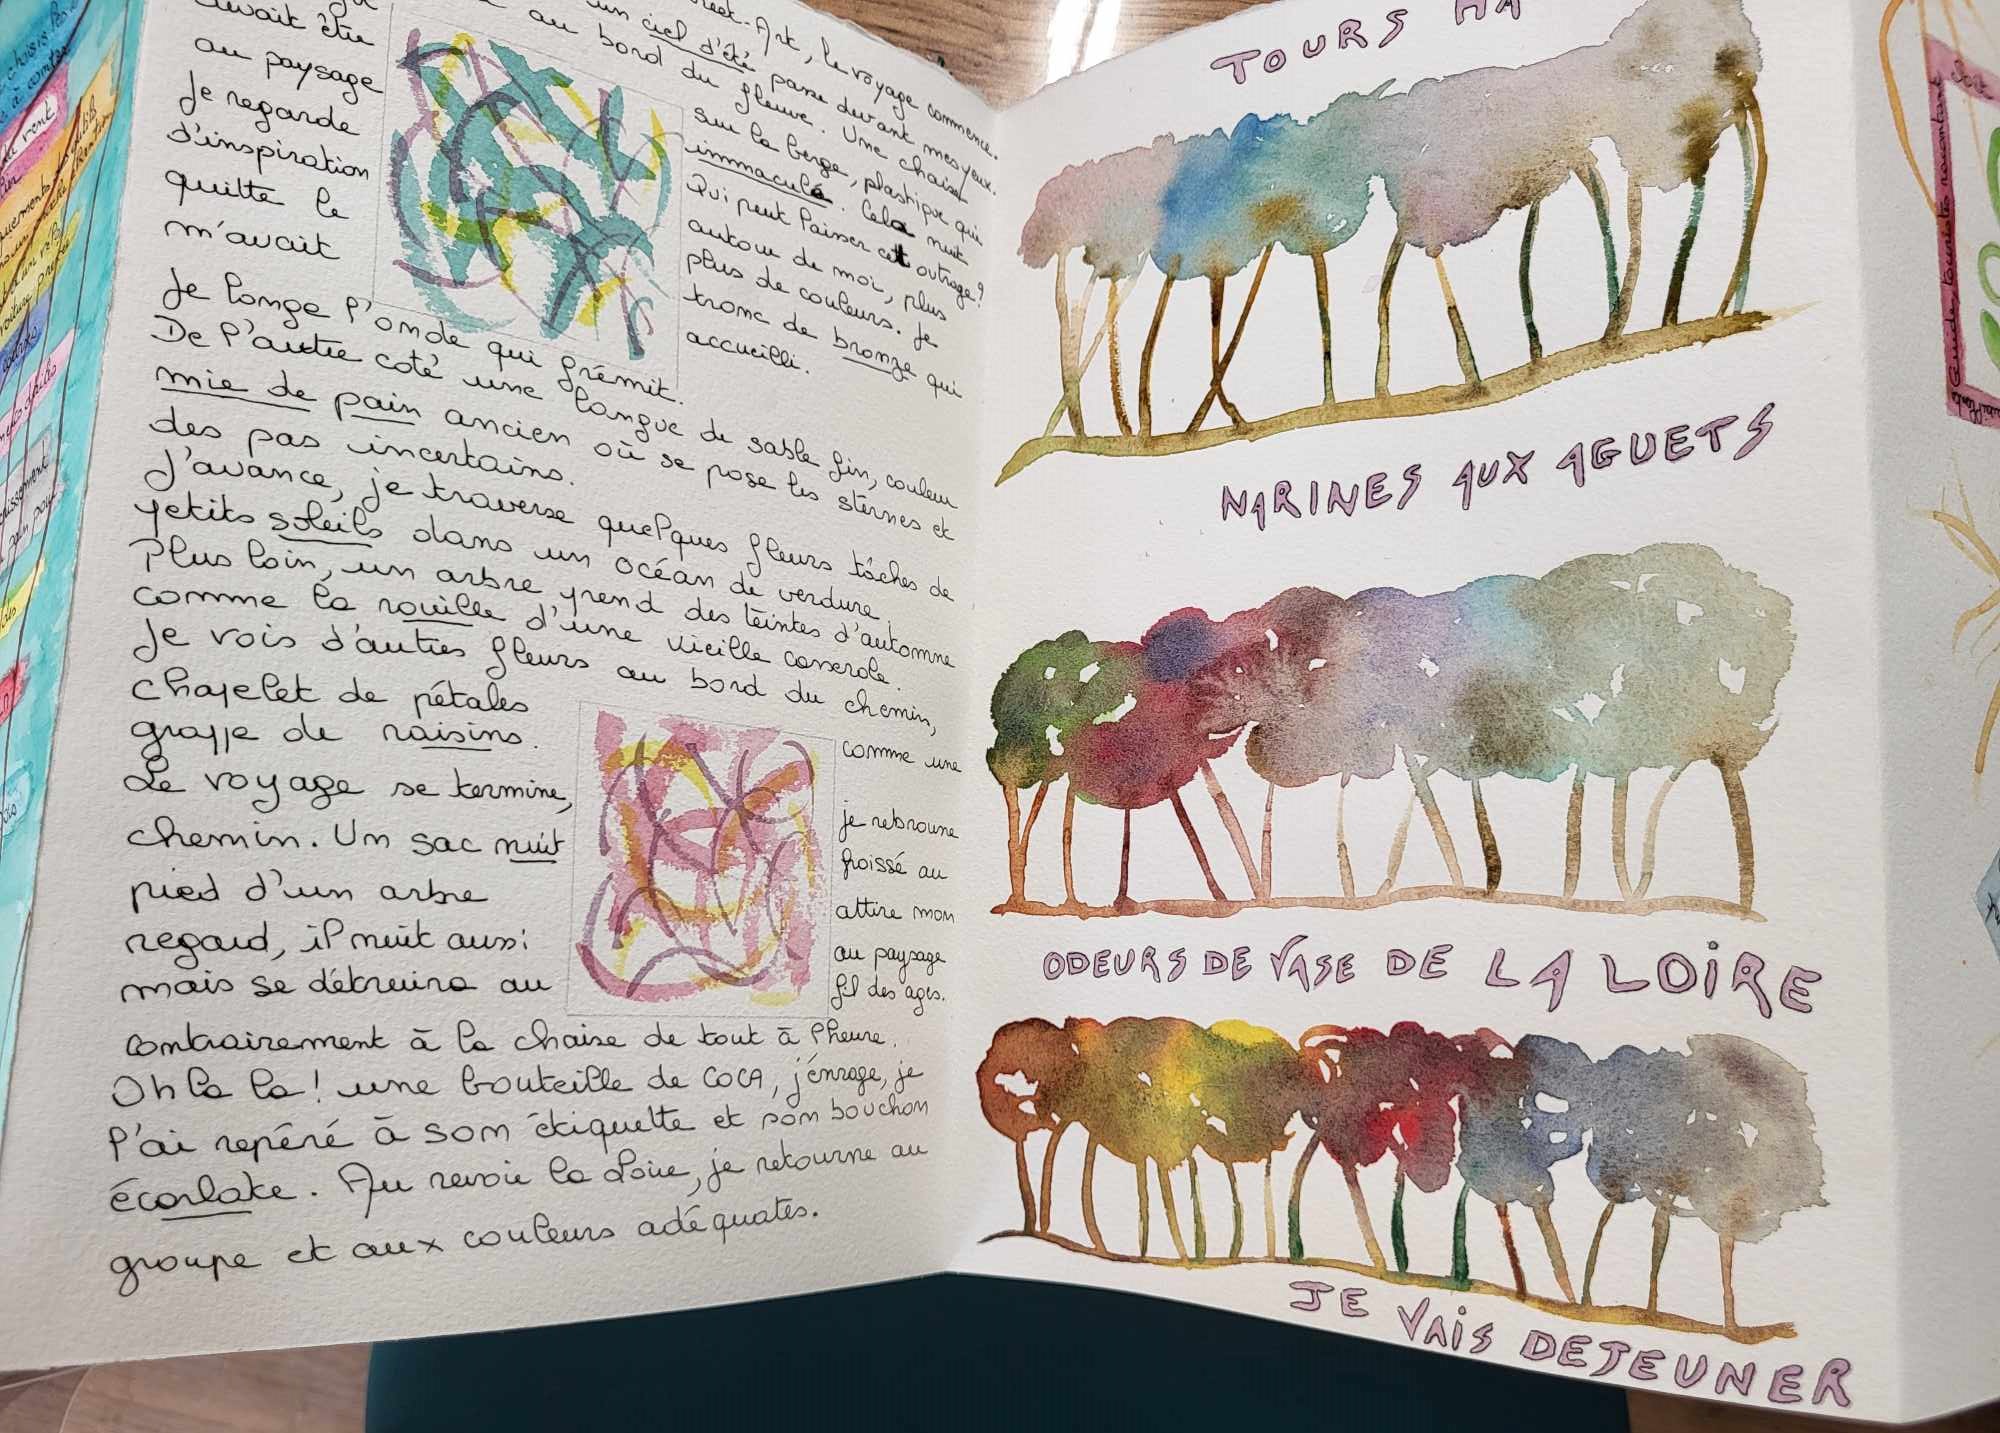 un ciel d'été passe devant mes yeux.
avait être au bord du fleuve. Une chaise
au paysage sur la berge, plastique qui
Je regarde immaculé. Cela nuit
d'inspiration Qui peut laisser cet outrage?
quitte le autour de moi, plus
m'avait plus de couleurs. Je
tronc de bronze qui
accueilli.
Je longe l'onde qui frémit.
De l'autre coté une langue de sable fin, couleur
mie de pain ancien où se pose les sternes et
des pas incertains.
J'avance, je traverse quelques fleurs tâches de
petits soleils dans un océan de verdure
Plus loin, un arbre prend des teintes d'automne
comme la rouille d'une vieille casserole.
Je vois d'autres fleurs au bord du chemin,
chapelet de pétales comme une
grappe de raisins.
Le voyage se termine, je rebrousse
chemin. Un sac nuit froissé au
pied d'un arbre attire mon
regard, il nuit aussi au paysage
mais se détruira au fil des ages.
contrairement à la chaise de tout à l'heure.
Oh la la! une bouteille de COCA, j'enrage, je
l'ai repéré à som étiquette et som bouchon
écarlate. Au revoir la Loire, je retourne au
groupe et aux couleurs adéquates.
TOURS
NARINES AUX AGUETS
ODEURS DE VASE DE LA LOIRE
JE VAIS DEJEUNER